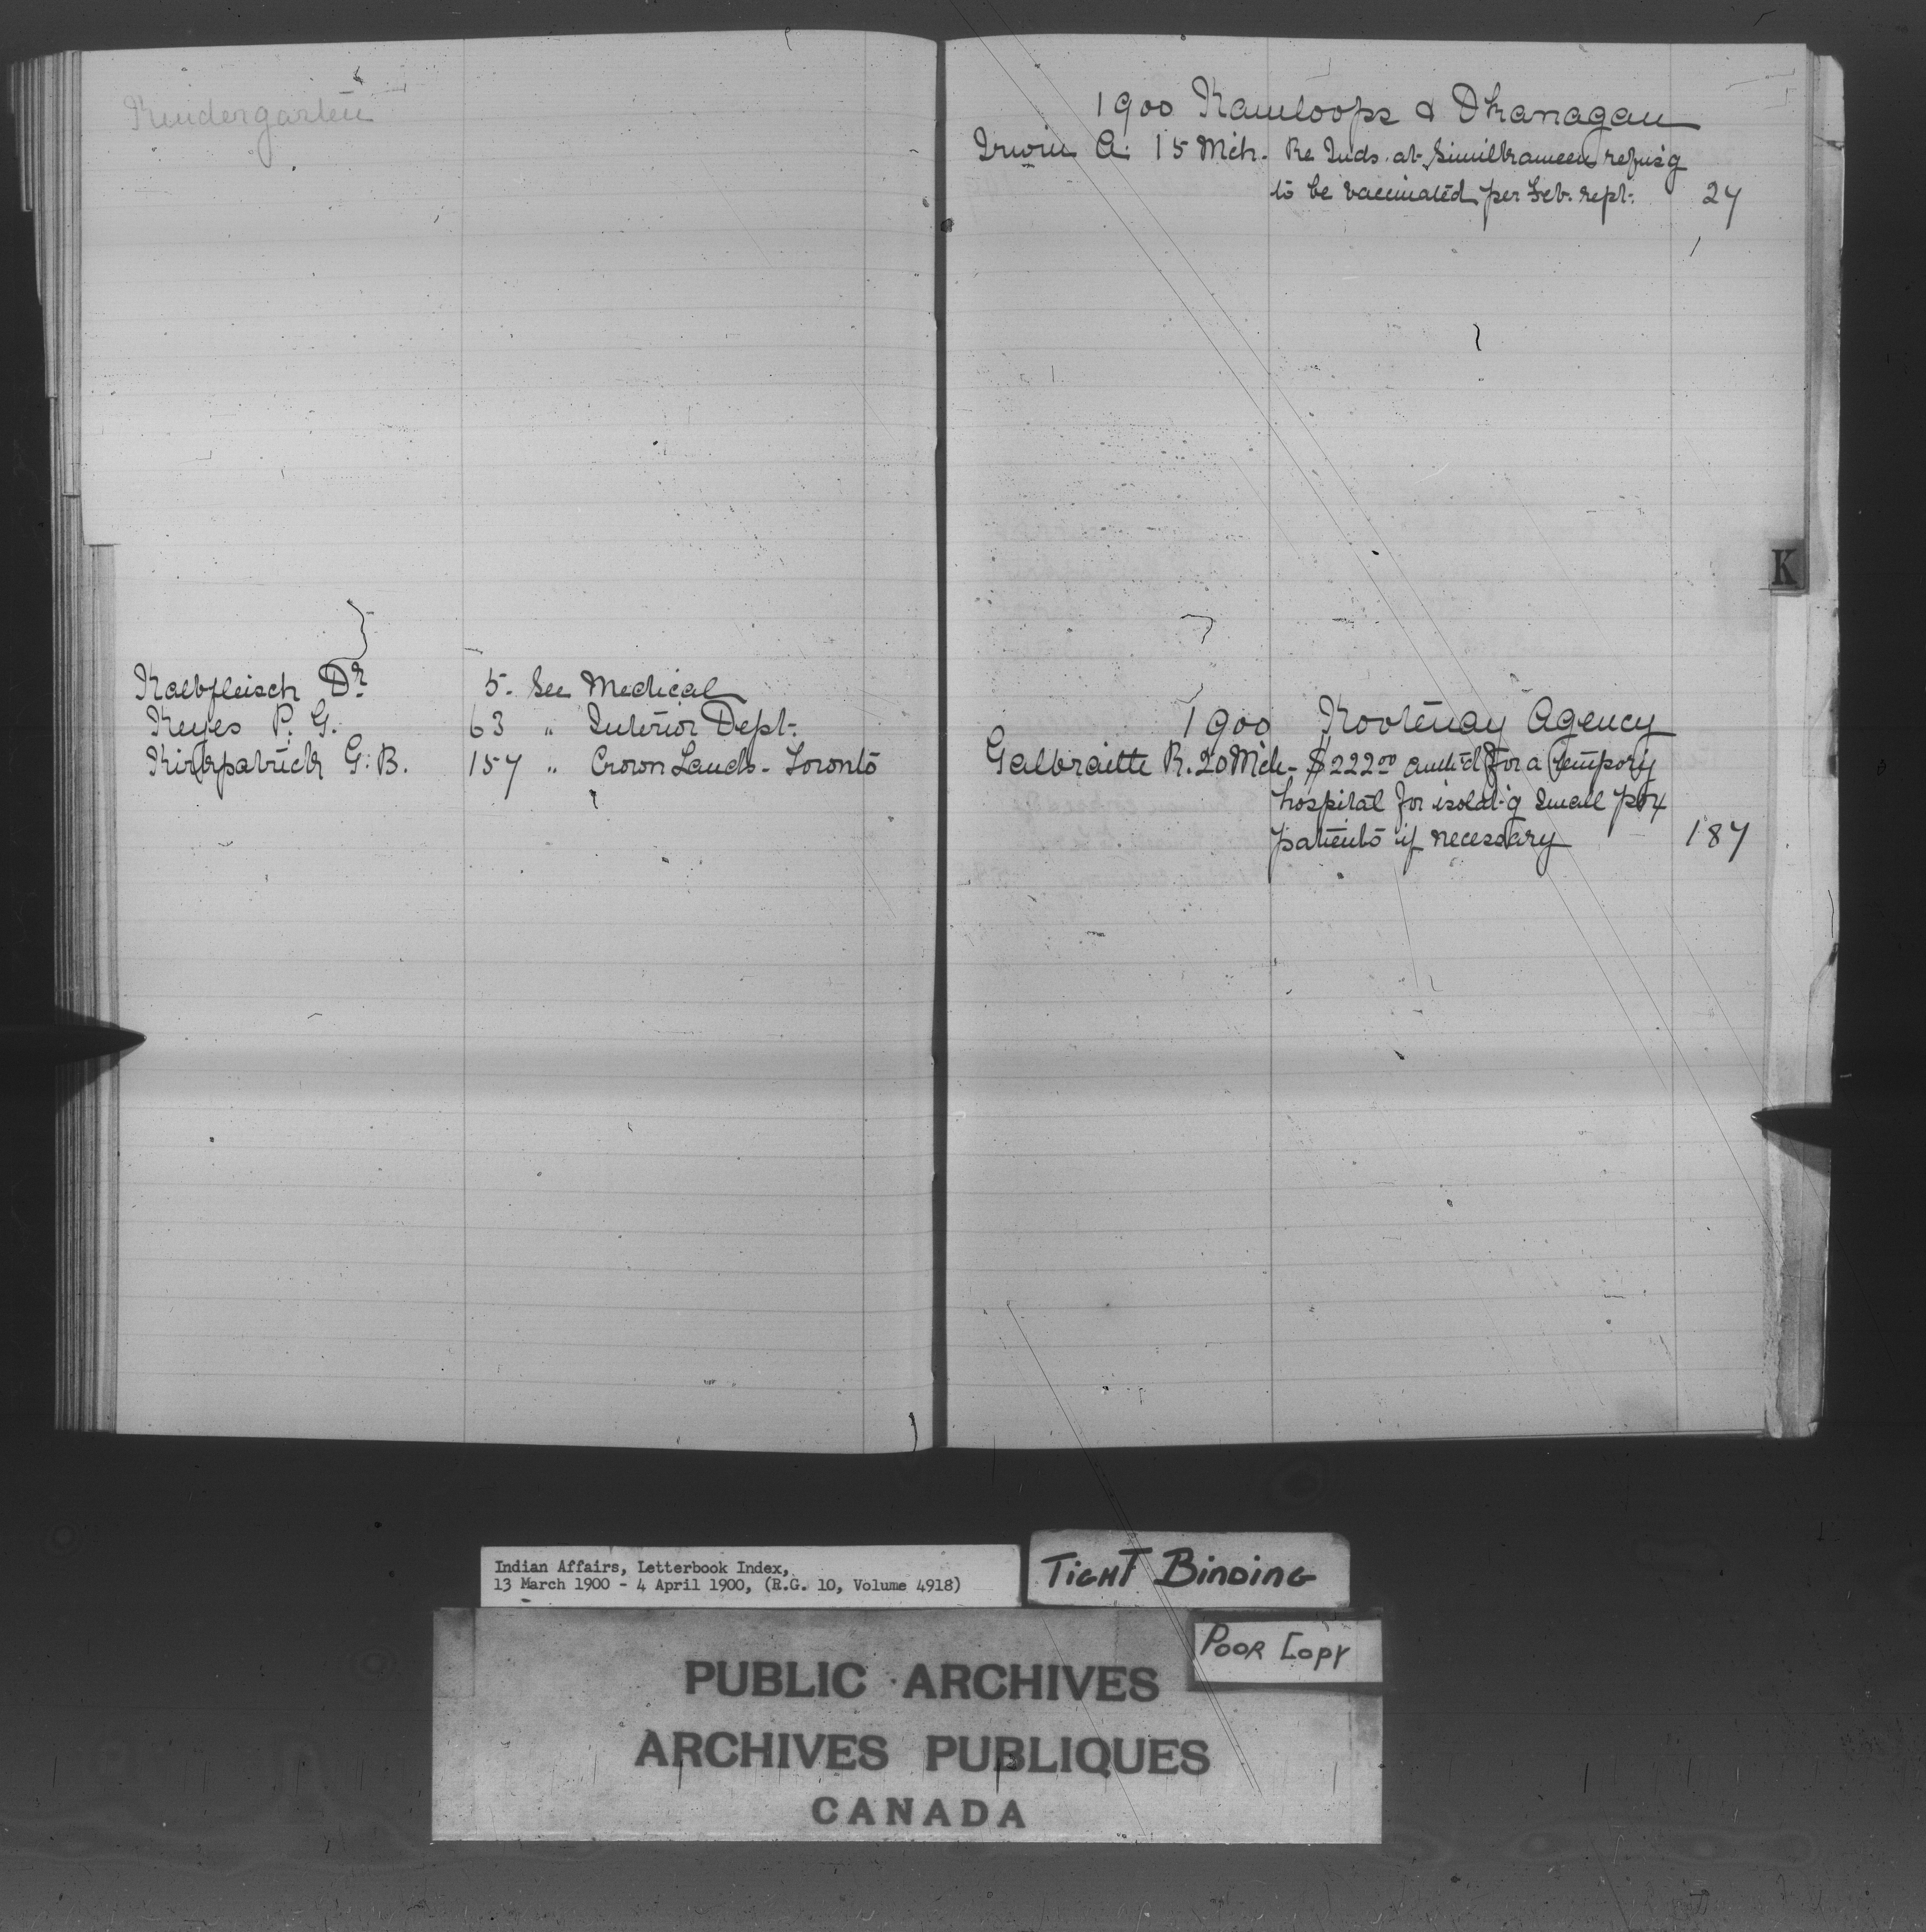 Kindergarten
Kalbfleisch Dr. 5. See Medical
Keyes P. G. 63 " Interior Dept.
Kirkpatrick G. B. 157 " Crown Lands - Toronto
1900 Kamloops & Okanagan
Irwin A. 15 Mch. Re Inds. at Similkameen refus'g
to be vaccinated per Feb. rept. 27
K
1900 Kootenay Agency
Galbraith R. 20 Mch - $222.00 auth'd for a tempory
hospital for isolat'g Small pox
patients if necessary 187
Indian Affairs, Letterbook Index,
13 March 1900 - 4 April 1900, (R.G. 10, Volume 4918)
TIGHT BINDING
POOR COPY
PUBLIC ARCHIVES
ARCHIVES PUBLIQUES
CANADA